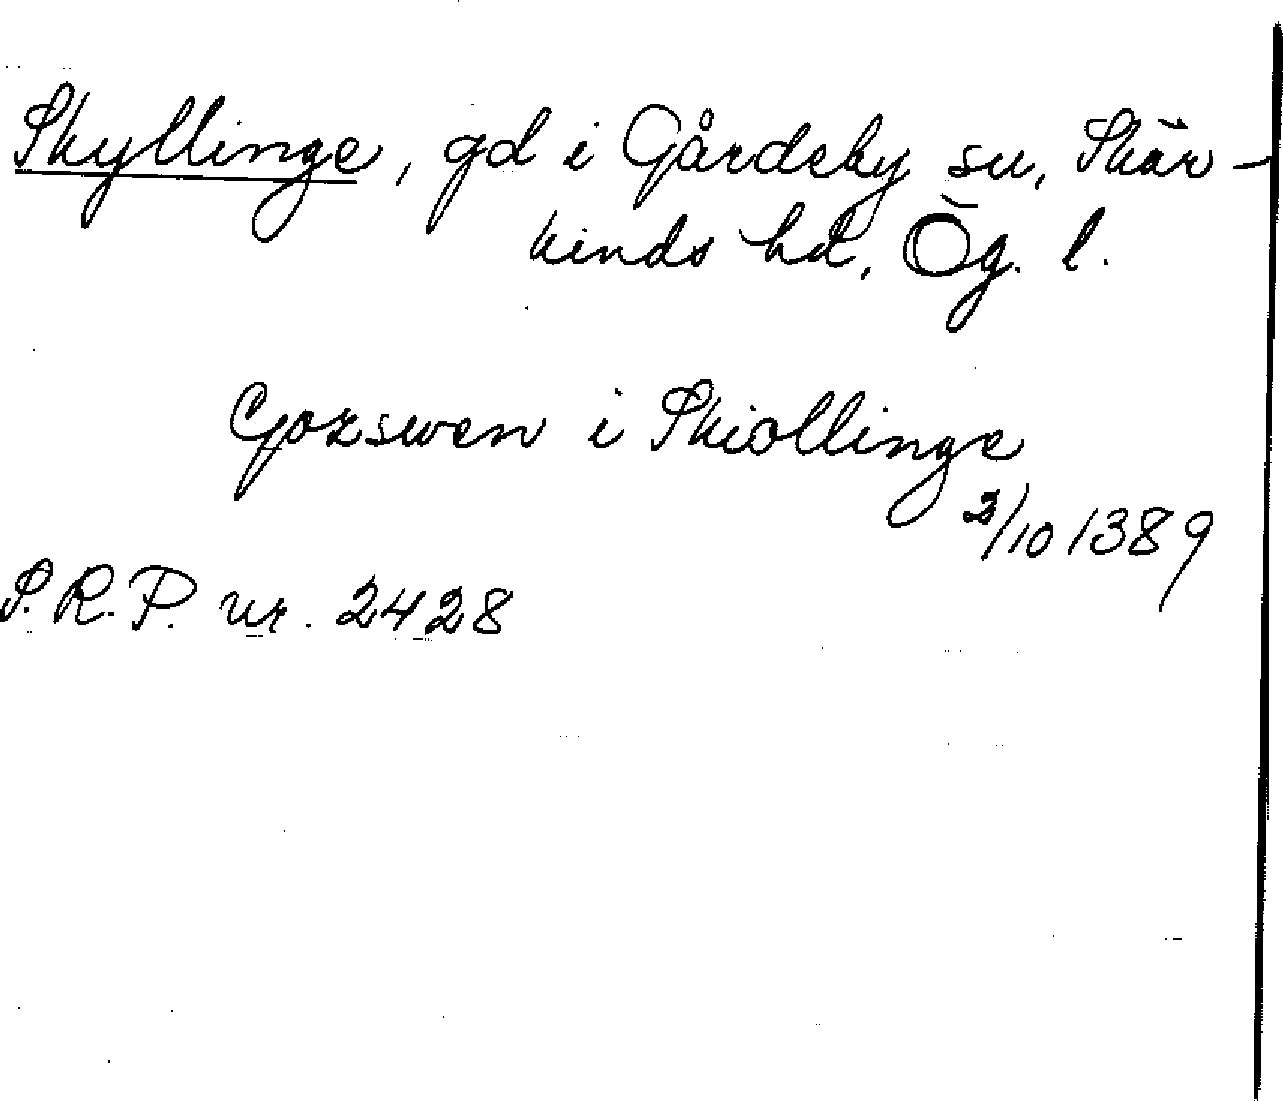 Skyllinge, gd i Gårdeby sn, Skär-
kinds hd, Ög. l.
Gozswen i Skiollinge
2/10 1389
S.R.P. nr. 2428